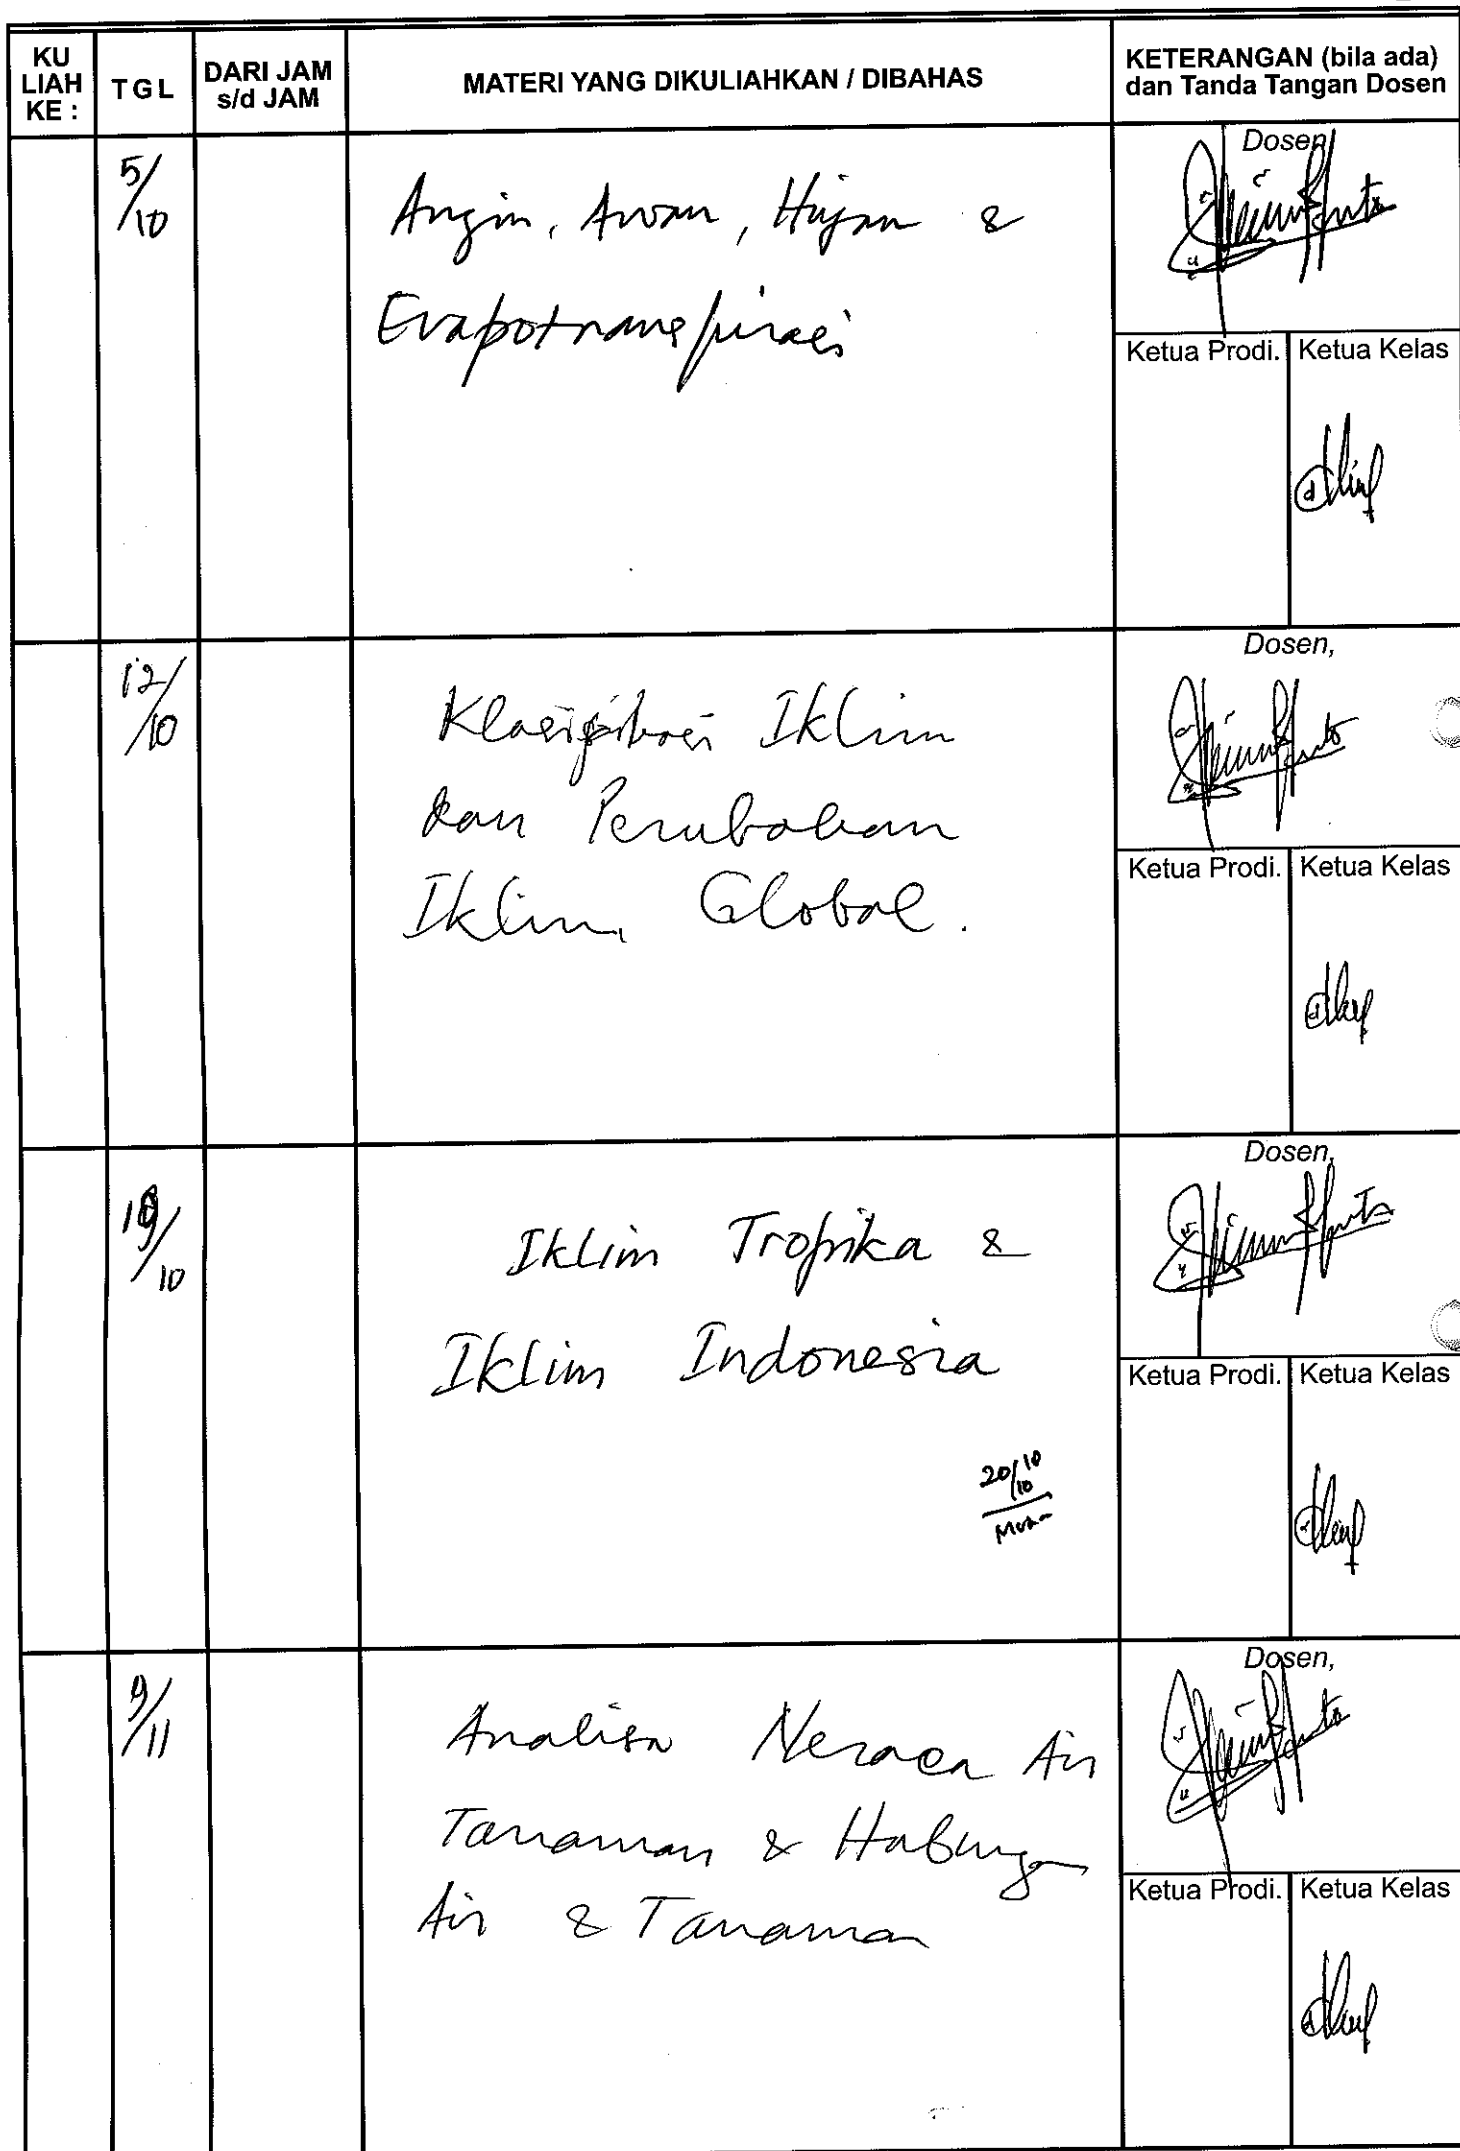 KU LIAH KE : TGL DARI JAM s/d JAM MATERI YANG DIKULIAHKAN / DIBAHAS KETERANGAN (bila ada) dan Tanda Tangan Dosen
5/10
Angin, Awan, Hujan &
Evapotranspirasi
Dosen,
Ketua Prodi. Ketua Kelas
12/10
Klasifikasi Iklim
dan Perubahan
Iklim Global.
Dosen,
Ketua Prodi. Ketua Kelas
19/10
Iklim Tropika &
Iklim Indonesia
20/10 10
Dosen,
Ketua Prodi. Ketua Kelas
9/11
Analisa Neraca Air
Tanaman & Hubungan
Air & Tanaman
Dosen,
Ketua Prodi. Ketua Kelas